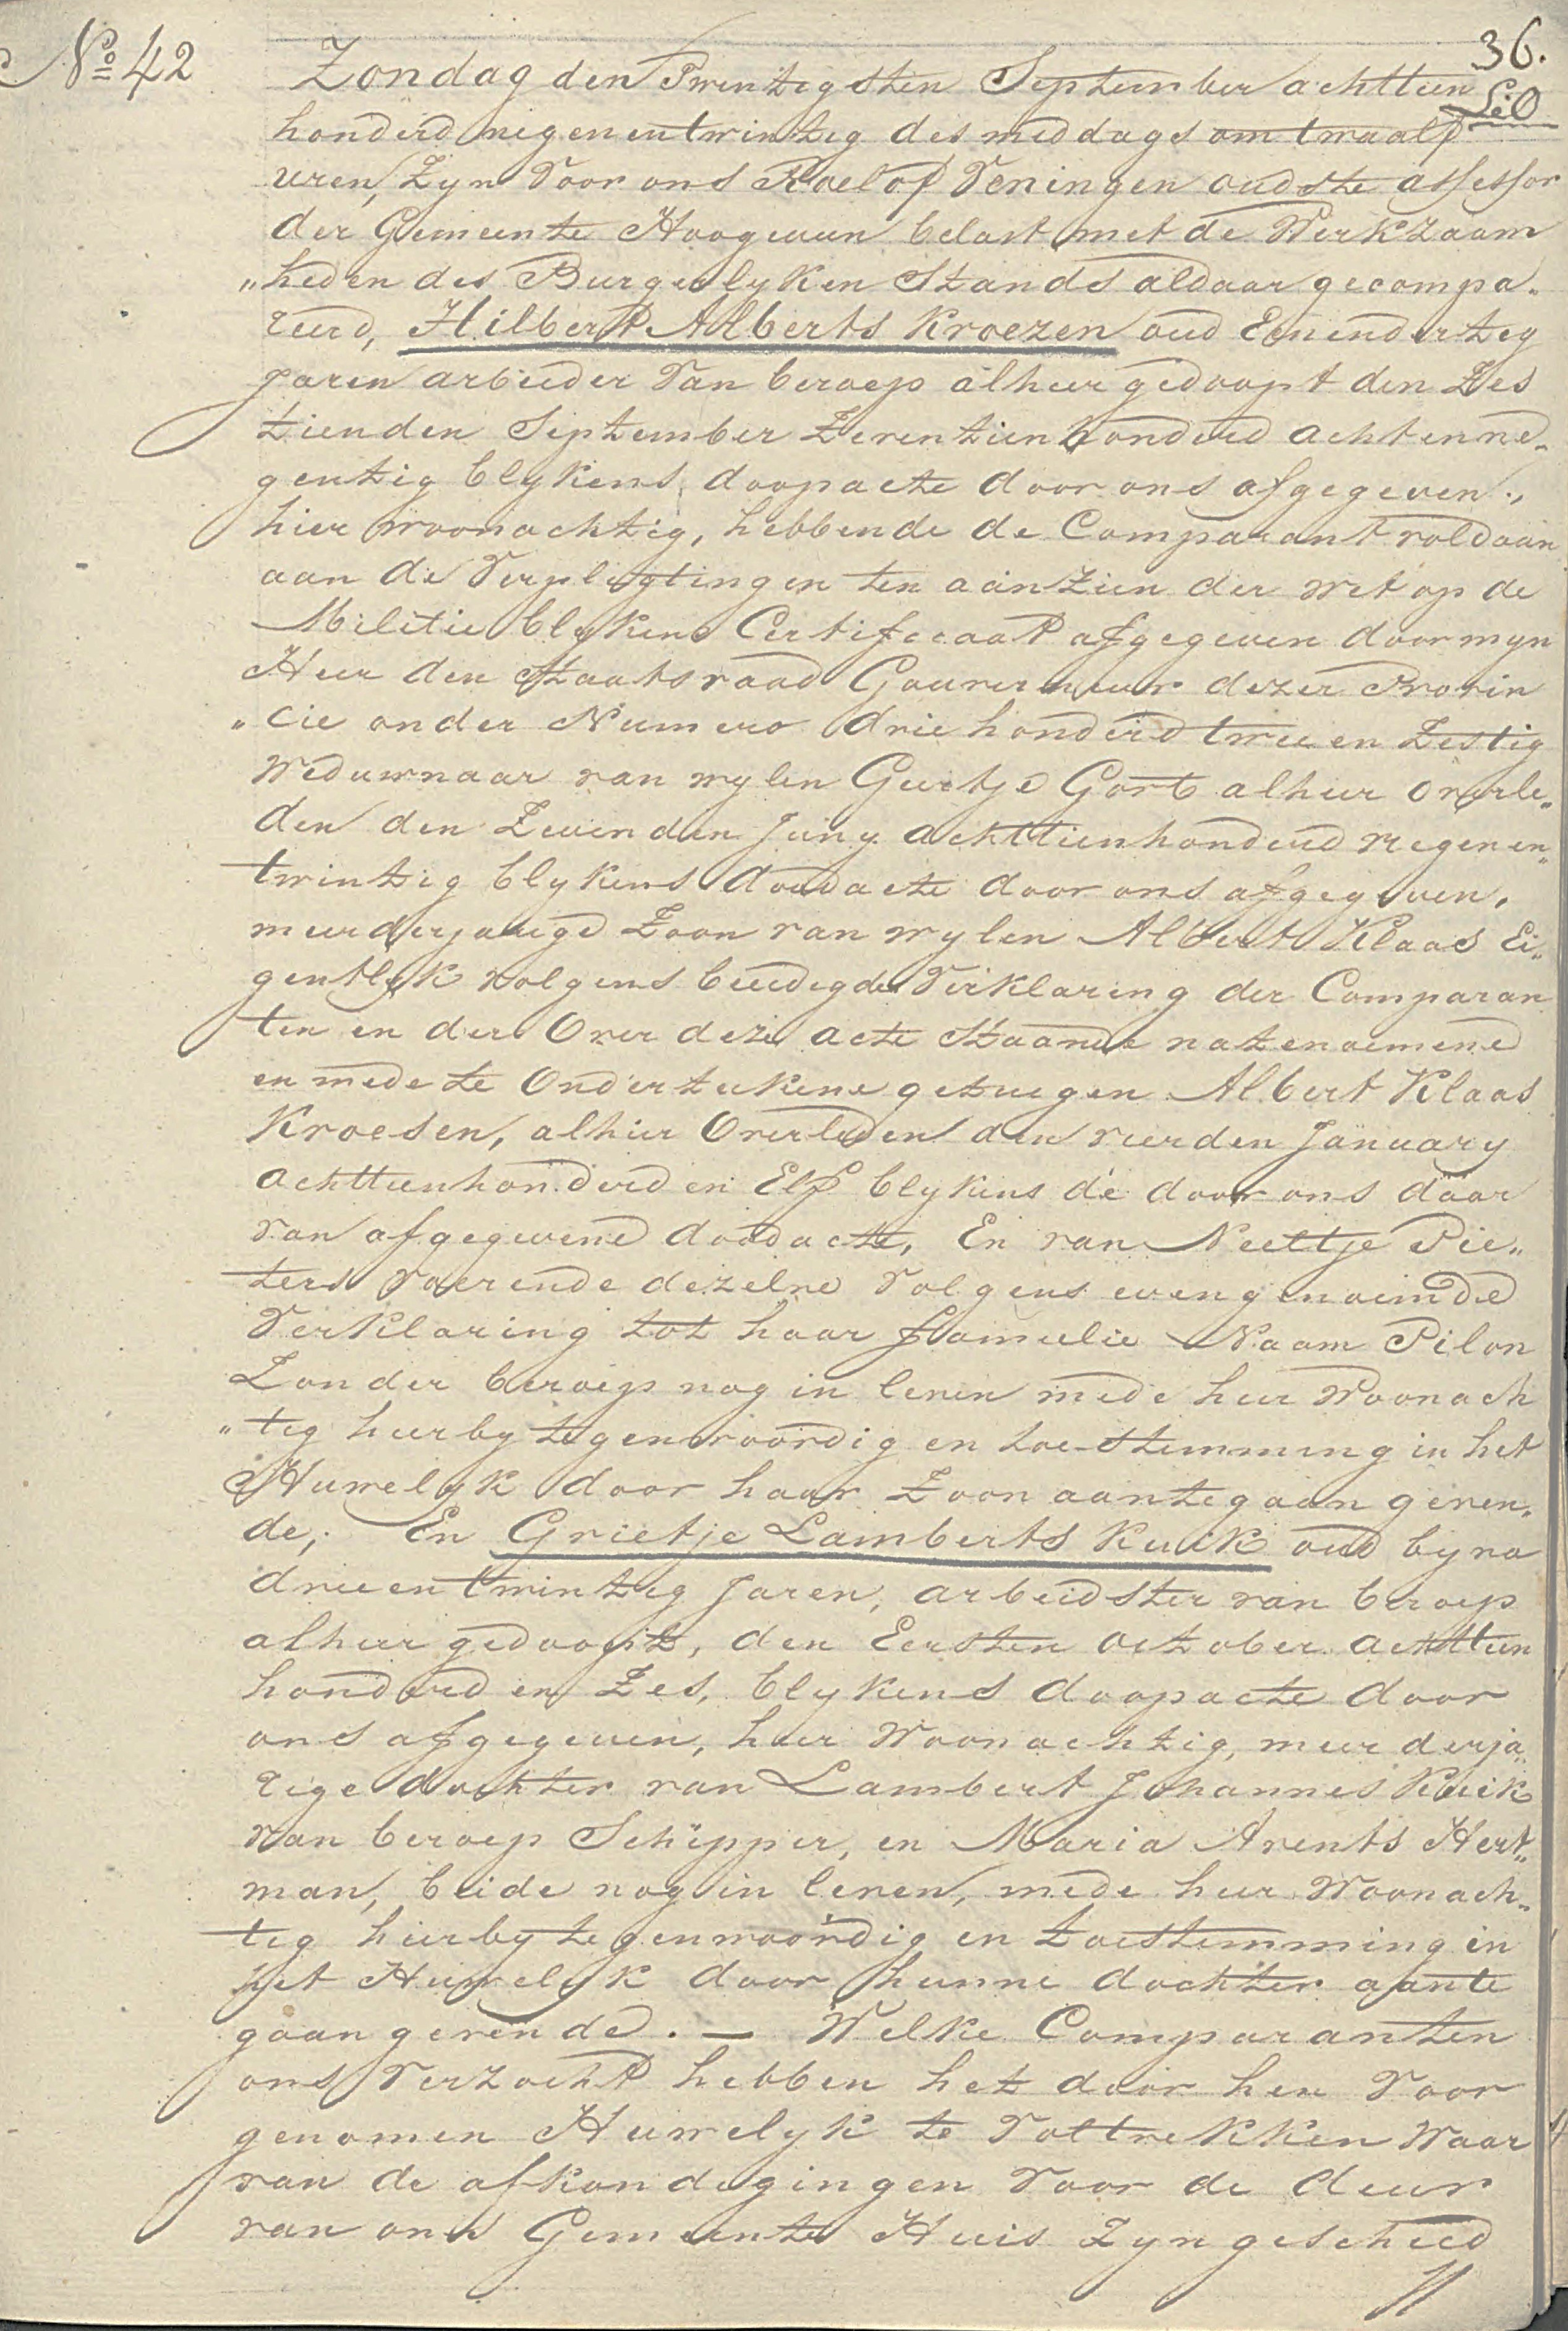 No 42
36.
Zondag den Twintigsten September achttien
honderd negenentwintig des middags om twaalf
uren, Zyn Voor ons Roelof Veningen oudste assessor
der Gemeente Hoogeveen belast met de Werkzaam
"heden des Burgerlyken Stands aldaar gecompa„
reerd, Hilbert Alberts Kroezen oud Eenendertig
Jaren arbeider Van beroep alhier gedoopt den Zes
tienden September Zeventienhonderd achtenne„
gentig blykens doopacte door ons afgegeven.,
hier woonachtig, hebbende de Comparant voldaan
aan de Verpligtingen ten aanzien der wet op de
Militie blykens Certificaat afgegeven door myn
Heer den Staatsraad Gouverneur dezer Provin
"cie onder Numero driehonderd twee en Zestig
Weduwnaar van wylen Geertje Gort alhier overle„
den den Zevenden Juny achttienhonderd negenen„
twintig blykens doodacte door ons afgegeven,
meerderjarige Zoon van wylen Albert Klaas Ei„
gentlyk volgens beeedigde Verklaring der Comparan
ten en der Over deze acte Staande natenoemene
en mede te Ondertekene getuegen Albert Klaas
Kroesen, alhier Overleden den vierden January
achttienhonderd en Elf blykens de door ons daar
van afgegevene doodacte, En van Neeltje Pie„
ters Voerende dezelve Volgens evengenoemde
Verklaring tot haar Familie Naam Pilon
Zonder beroep nog in leven mede hier Woonach
"tig hierby tegenwoordig en toestemming in het
Huwelyk door haar Zoon aantegaan geven„
de, En Grietje Lamberts Kuik oud byna
drieentwintig Jaren, arbeidster van beroep
alhier gedoopt, den Eersten October achttien
honderd en Zes, blykens doopacte door
ons afgegeven, hier Woonachtig, meerderja„
rige dochter van Lambert Johannes Kuik
van beroep Schipper, en Maria Arents Hert„
man, beide nog in leven, mede hier Woonach„
tig hierby tegenwoordig en toestemming in
het Huwelyk door hunne dochter aante
gaan gevende. — Welke Comparanten
ons Verzocht hebben het door hen Voor
genomen Huwelyk te Voltrekken Waar
van de afkondigingen Voor de deur
van ons Gemeente Huis Zyn geschied